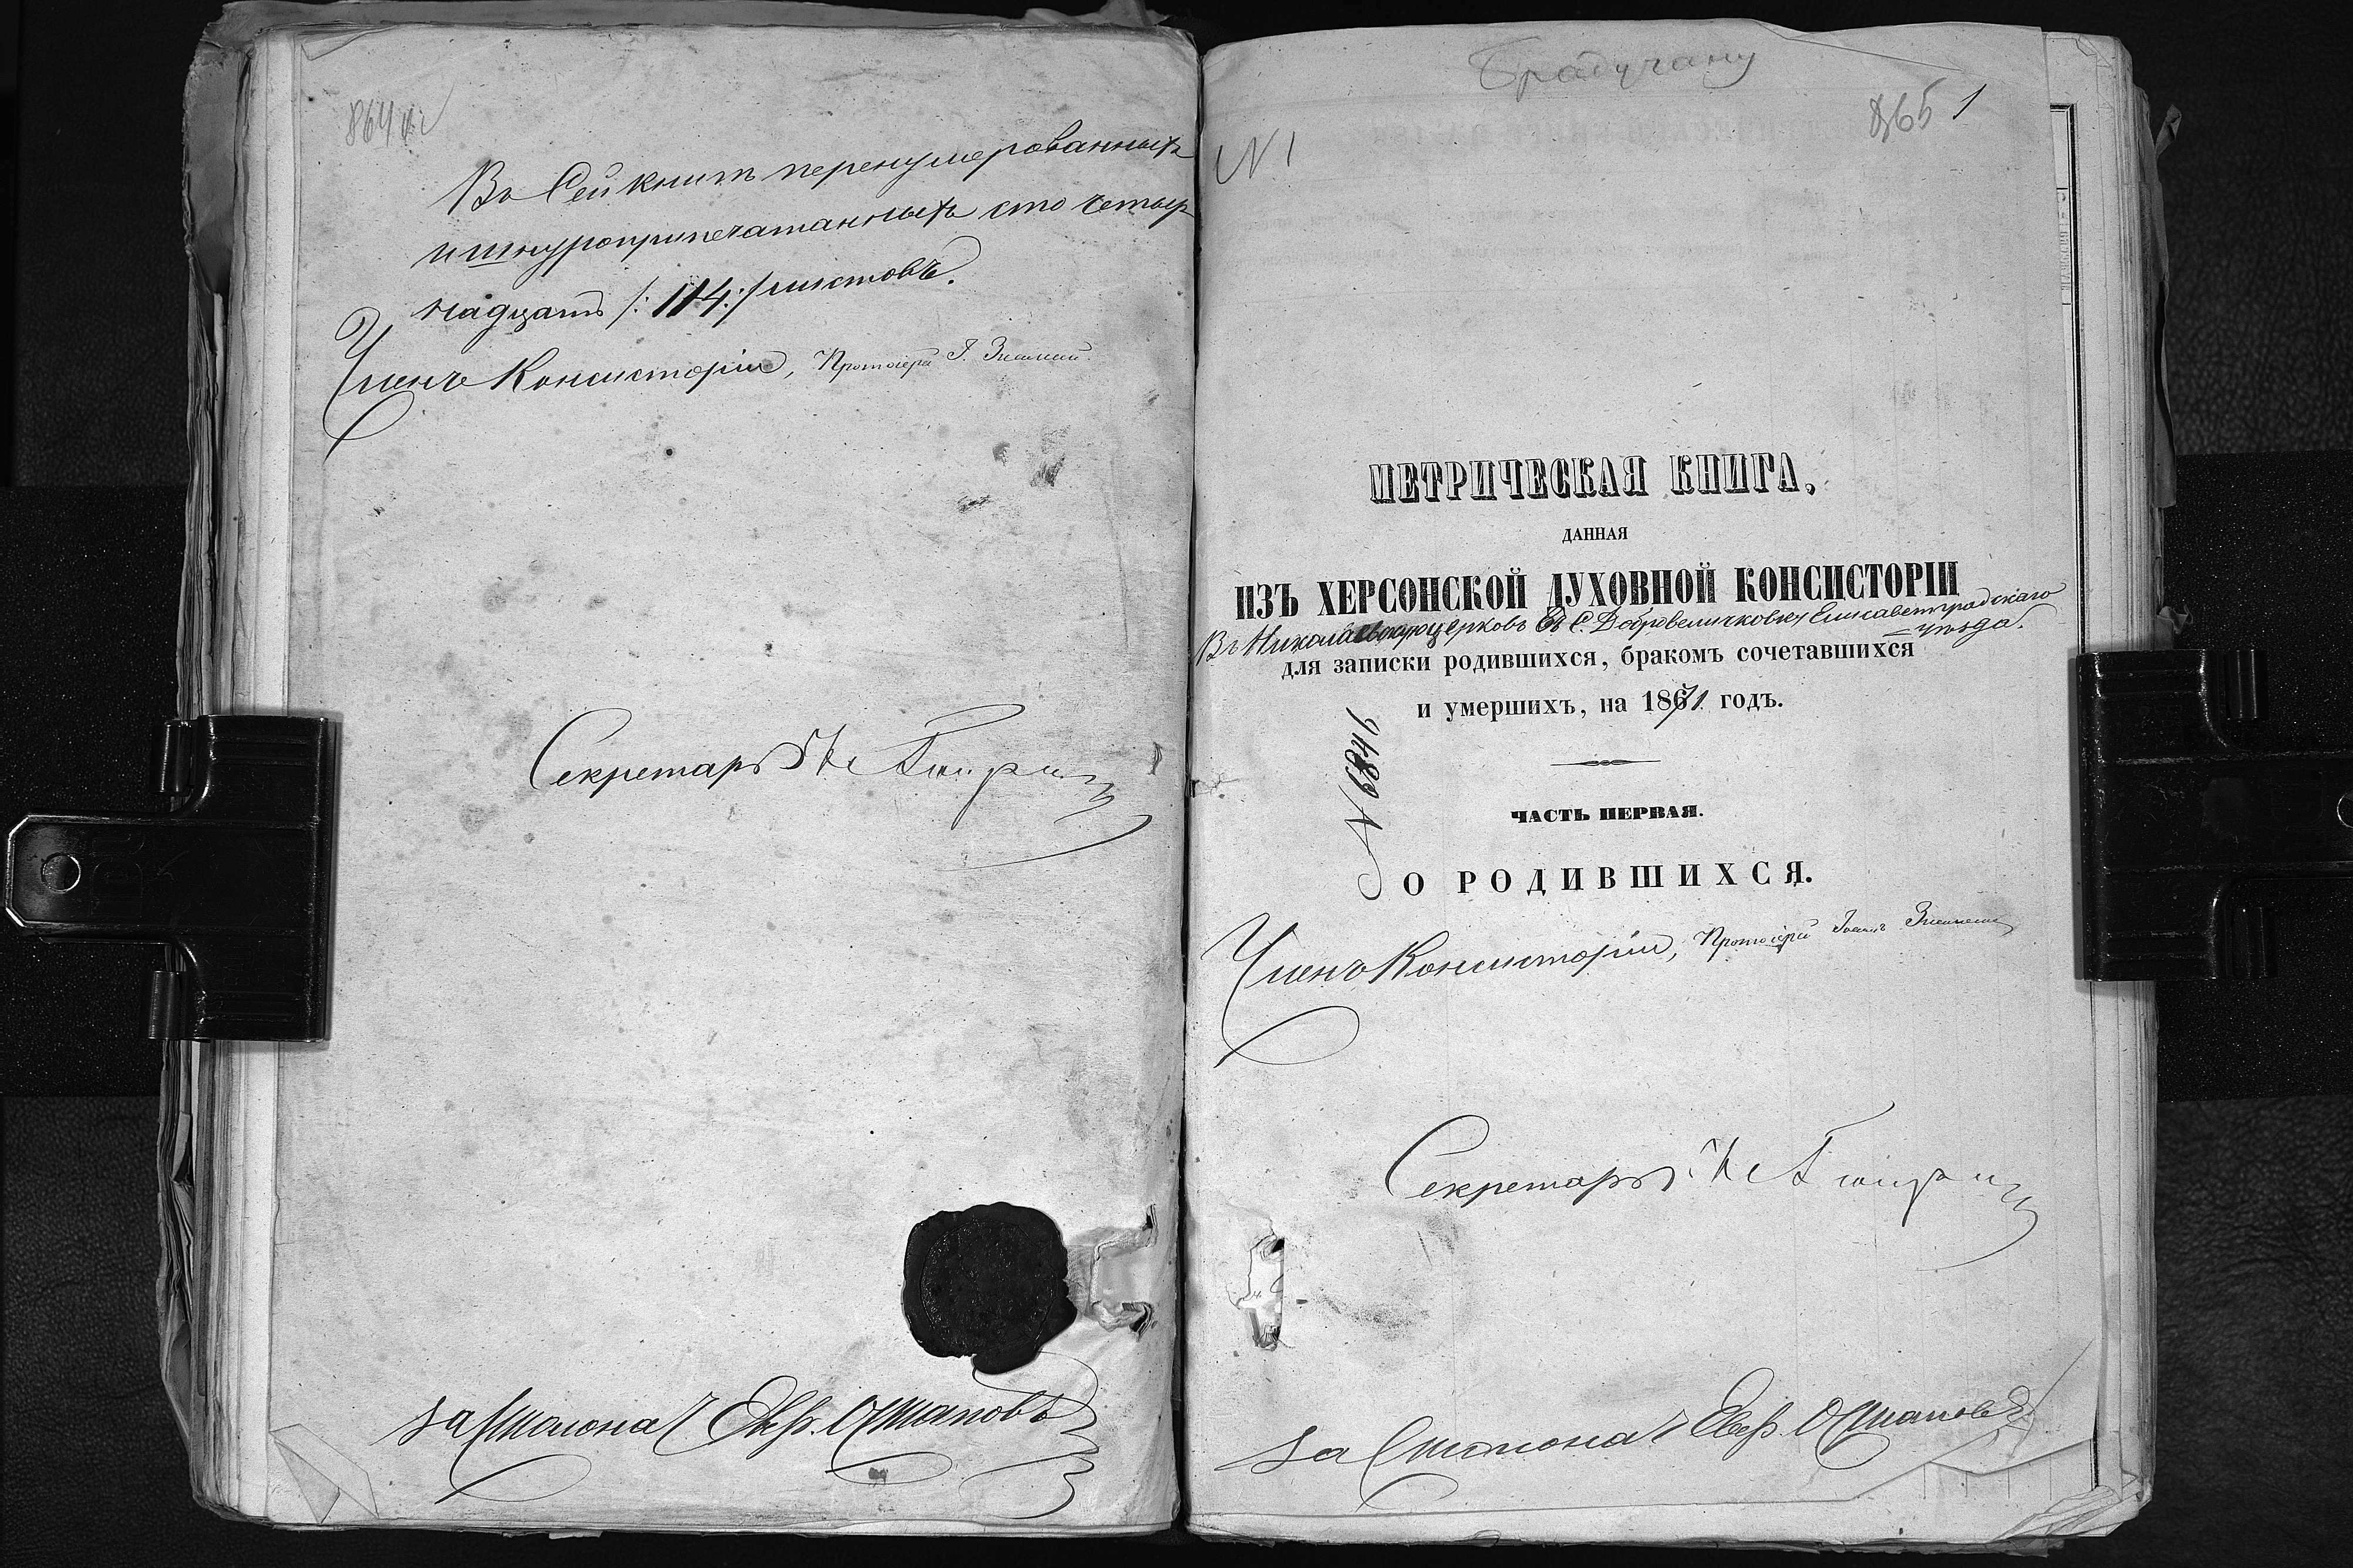 864 об
Въ Сей книгѣ перенумерованныхъ
и шнуроприпечатанныхъ сто четыр
надцать /:114:/ листовъ.
Членъ Консисторіи, Протоіерей І.
Секретарь
За Столона Евф. Остаповъ
865 1
N 1
МЕТРИЧЕСКАЯ КНИГА,
ДАННАЯ
ИЗЪ ХЕРСОНСКОЙ ДУХОВНОЙ КОНСИСТОРІИ
Въ Николаевскую церковь С. Добровеличковки Елисаветградскаго
уѣзда.
для записки родившихся, бракомъ сочетавшихся
и умершихъ, на 1871 годъ.
N 6846
ЧАСТЬ ПЕРВАЯ.
О РОДИВШИХСЯ.
Членъ Консисторіи, Протоіерей Іоаннъ
Секретарь
За Столона Евф. Остаповъ